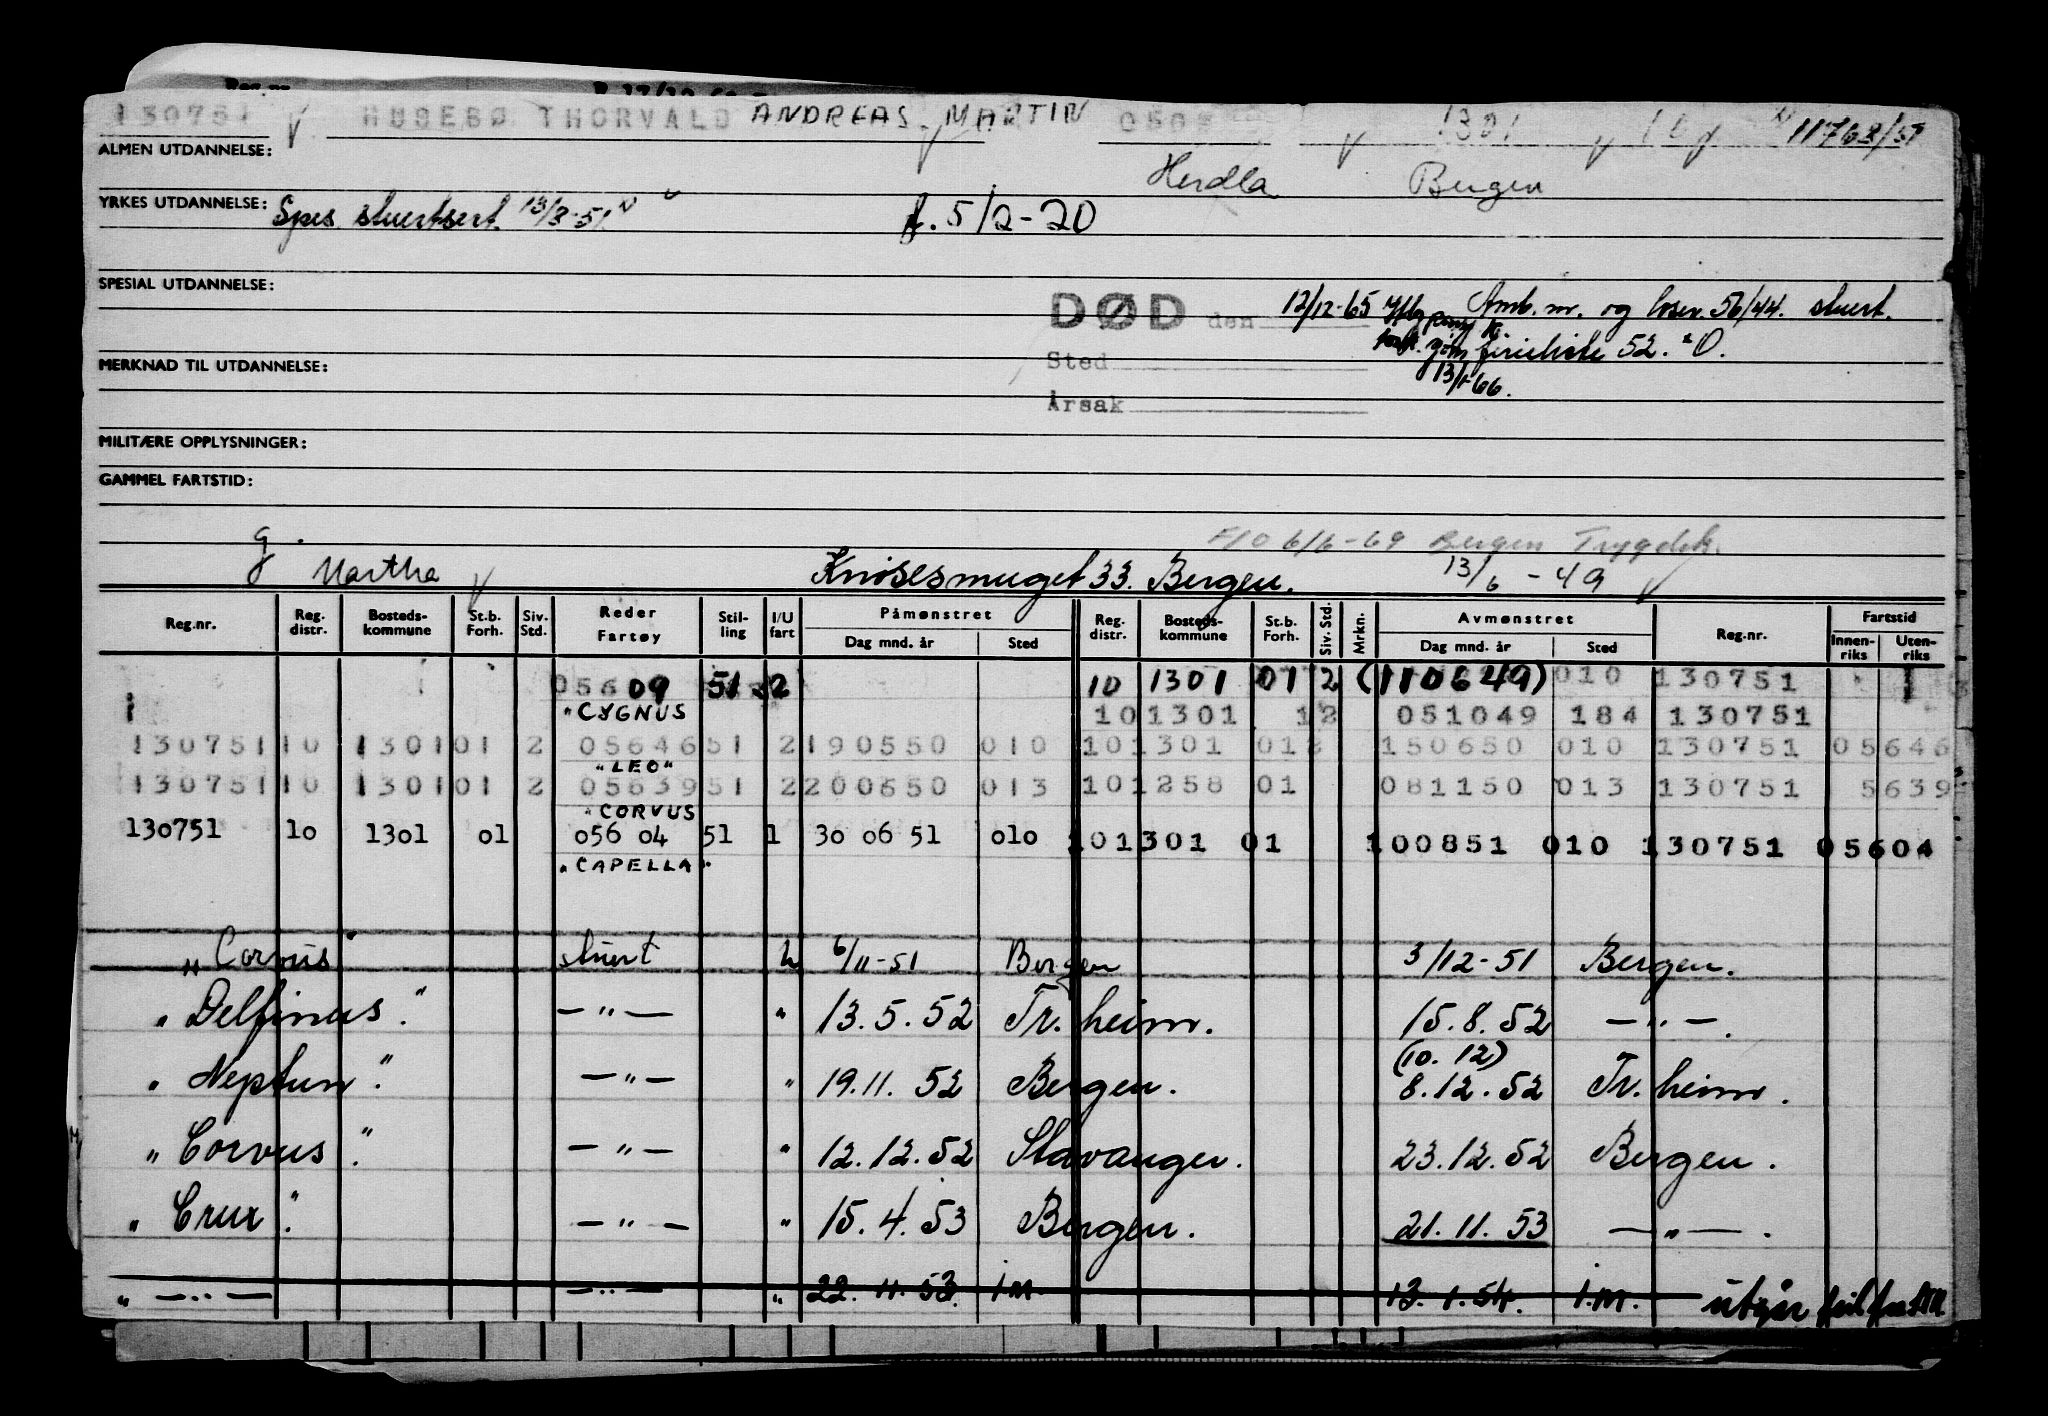 130751 HUSEBØ THORVALD ANDREAS MARTIN 1301 11762/51
ALMEN UTDANNELSE:
Herdla Bergen
YRKES UTDANNELSE: Spes. stuertsert. 13/3-51
f. 5/2-20
SPESIAL UTDANNELSE:
DØD den 12/12-65 Amb. nr. og losen. 56/44. stuert.
Sted ferieliste 52.
MERKNAD TIL UTDANNELSE:
13/1-66.
Årsak
MILITÆRE OPPLYSNINGER:
GAMMEL FARTSTID:
g. F/O 6/6-69 Bergen Trygdek.
Martha Knøsesmuget 33. Bergen. 13/6-49
Reg.nr. Reg. distr. Bosteds-kommune St.b. Forh. Siv. Std. Reder Fartøy Stil-ling I/U fart Påmønstret Dag mnd. år Sted Reg. distr. Bosteds-kommune St.b. Forh. Siv. Std. Mrkn. Avmønstret Dag mnd. år Sted Reg.nr. Fartstid Innen-riks Uten-riks
05609 51 2 10 1301 01 2 (110649) 010 130751
"CYGNUS 10 1301 12 051049 184 130751
130751 10 1301 01 2 05646 51 2 190550 010 10 1301 01 2 150650 010 130751 05646
"LEO"
130751 10 1301 01 2 05639 51 2 200650 013 10 1258 01 081150 013 130751 5639
"CORVUS
130751 10 1301 01 056 04 51 1 30 06 51 010 10 1301 01 100851 010 130751 05604
"CAPELLA"
"Corvus" stuert U 6/11-51 Bergen 3/12-51 Bergen.
"Delfinus". —"— " 13.5.52 Tr.heim. 15.8.52 —"—.
(10.12)
"Neptun". —"— " 19.11.52 Bergen. 8.12.52 Tr.heim.
"Corvus". —"— " 12.12.52 Stavanger. 23.12.52 Bergen.
"Crux". —"— " 15.4.53 Bergen. 21.11.53 —"—.
" —"— —"— " 22.11.53. i.m. 13.1.54. i.m. utgår